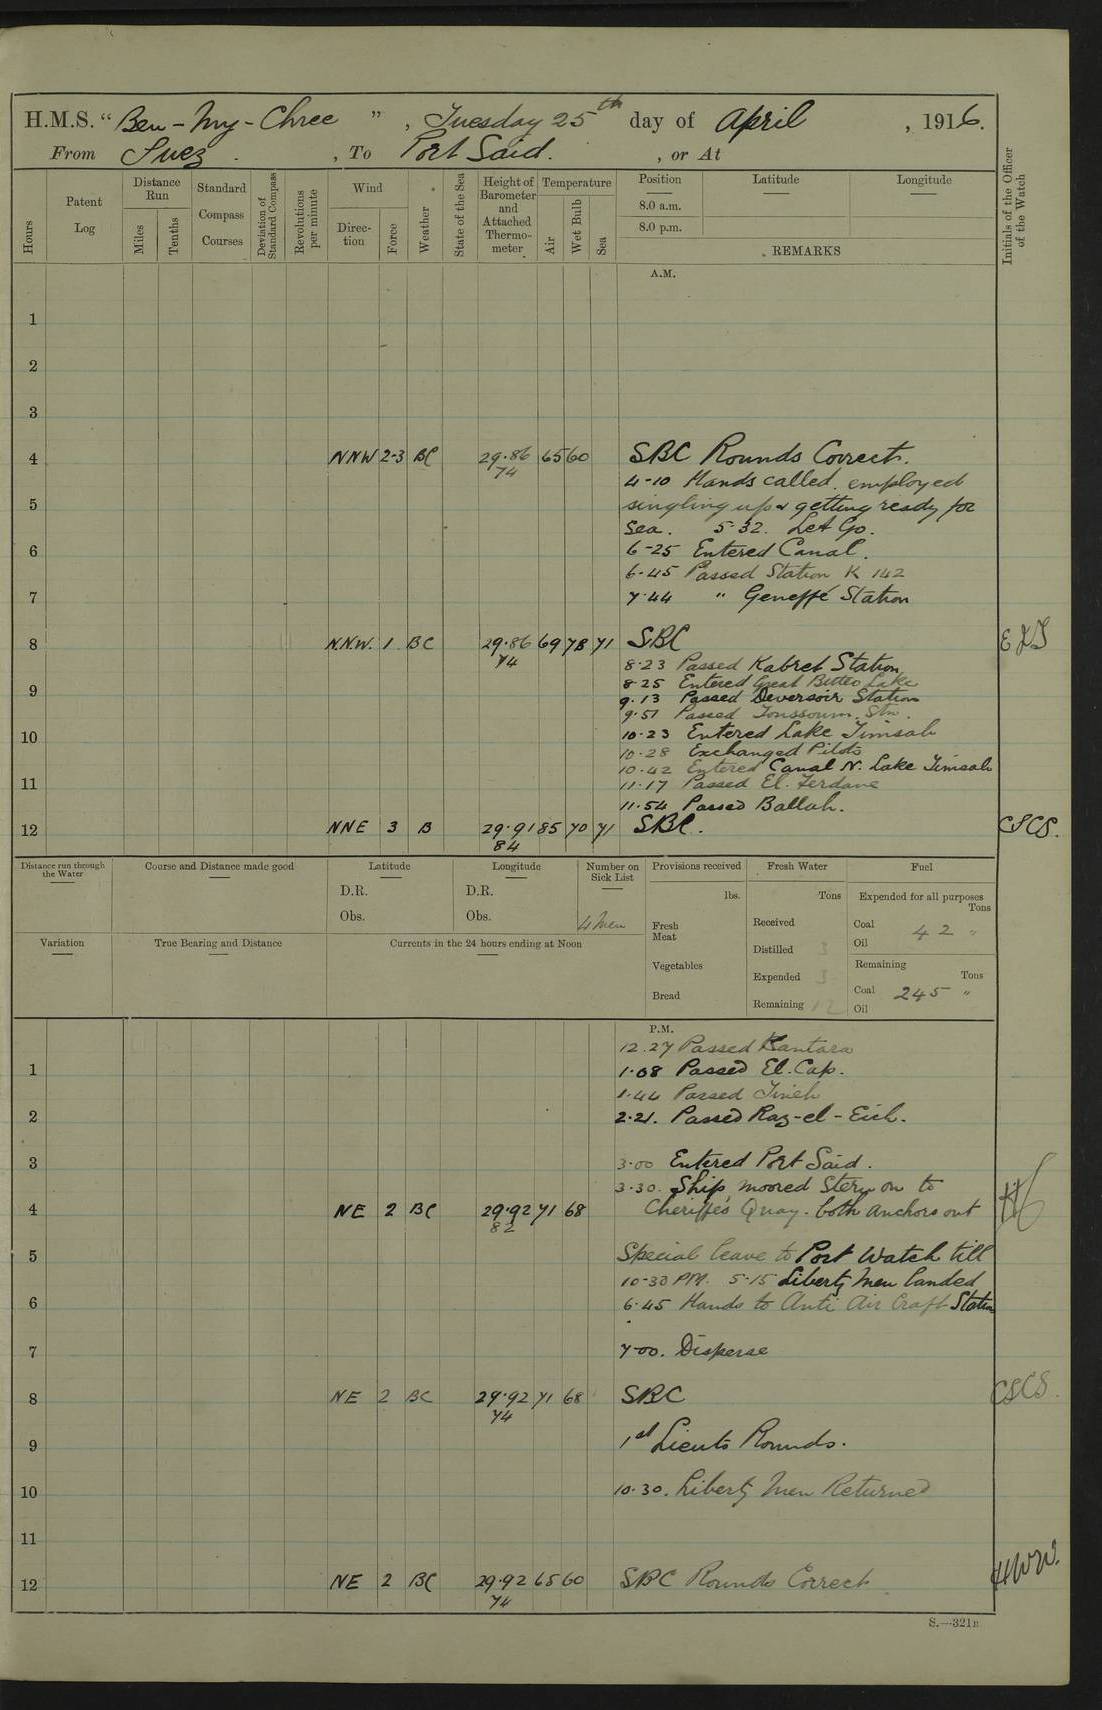 H.M.S. "Ben-My-Chree", Tuesday 25th day of April, 1916.
From Suez, To Port Said., or At
Hours
Patent Log
Distance Run
Miles
Tenths
Standard Compass Courses
Deviation of Standard Compass
Revolutions per minute
Wind
Direction
Force
Weather
State of the Sea
Height of Barometer and Attached Thermometer
Temperature
Air
Wet Bulb
Sea
Position
8.0 a.m.
8.0 p.m.
Latitude
Longitude
REMARKS
Initials of the Officer of the Watch
A.M.
1
2
3
4 NNW 2-3 BC 29.86 65 60 SBC Rounds Correct.
74
4-10 Hands called. employed
5 singling up & getting ready for
Sea. 5-32. Let Go.
6 6-25 Entered Canal.
6-45 Passed Station K 142
7 7.44 " Geneffé Station
8 N.N.W. 1 BC 29.86 69 78 71 SBC
74
8.23 Passed Kabret Station
8.25 Entered Great Bitter Lake
9 9.13 Passed Deversoir Station
9.51 Passed Toussoum. Stn.
10 10-23 Entered Lake Timsah
10-28 Exchanged Pilots
10-42 Entered Canal N. Lake Timsah
11 11-17 Passed El. Ferdane
11.54 Passed Ballah.
12 NNE 3 B 29.91 85 70 71 SBC. CSCS.
84
Distance run through the Water
Course and Distance made good
Latitude
D.R.
Obs.
Longitude
D.R.
Obs.
Number on Sick List
4 Men
Provisions received
lbs.
Fresh Meat
Vegetables
Bread
Fresh Water
Tons
Received
Distilled 3
Expended 3
Remaining 12
Fuel
Expended for all purposes
Tons
Coal 42 "
Oil
Remaining
Tons
Coal 245 "
Oil
Variation
True Bearing and Distance
Currents in the 24 hours ending at Noon
P.M.
12.27 Passed Kantara
1 1.08 Passed El. Cap.
1.44 Passed Tineh
2 2.21. Passed Raz-el-Eich.
3 3.00 Entered Port Said.
3.30. Ship moored Stern on to
4 NE 2 BC 29.92 71 68 Cheriffe's Quay. both anchors out
82
5 Special leave to Port Watch till
10-30 PM. 5-15 Liberty Men landed
6 6.45 Hands to Anti Air Craft Station
7 7-00. Disperse
8 NE 2 BC 29.92 71 68 SBC CSCS.
74
9 1st Lieuts Rounds.
10 10.30. Liberty Men Returned
11
12 NE 2 BC 29.92 65 60 SBC Rounds Correct HWW.
74
S.—321B